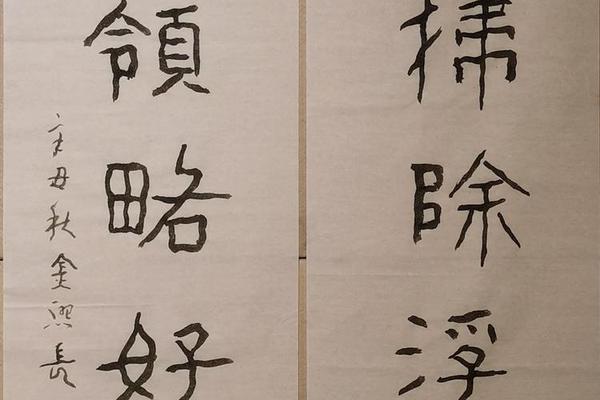 掃除浮
領略好
辛丑秋金熙長